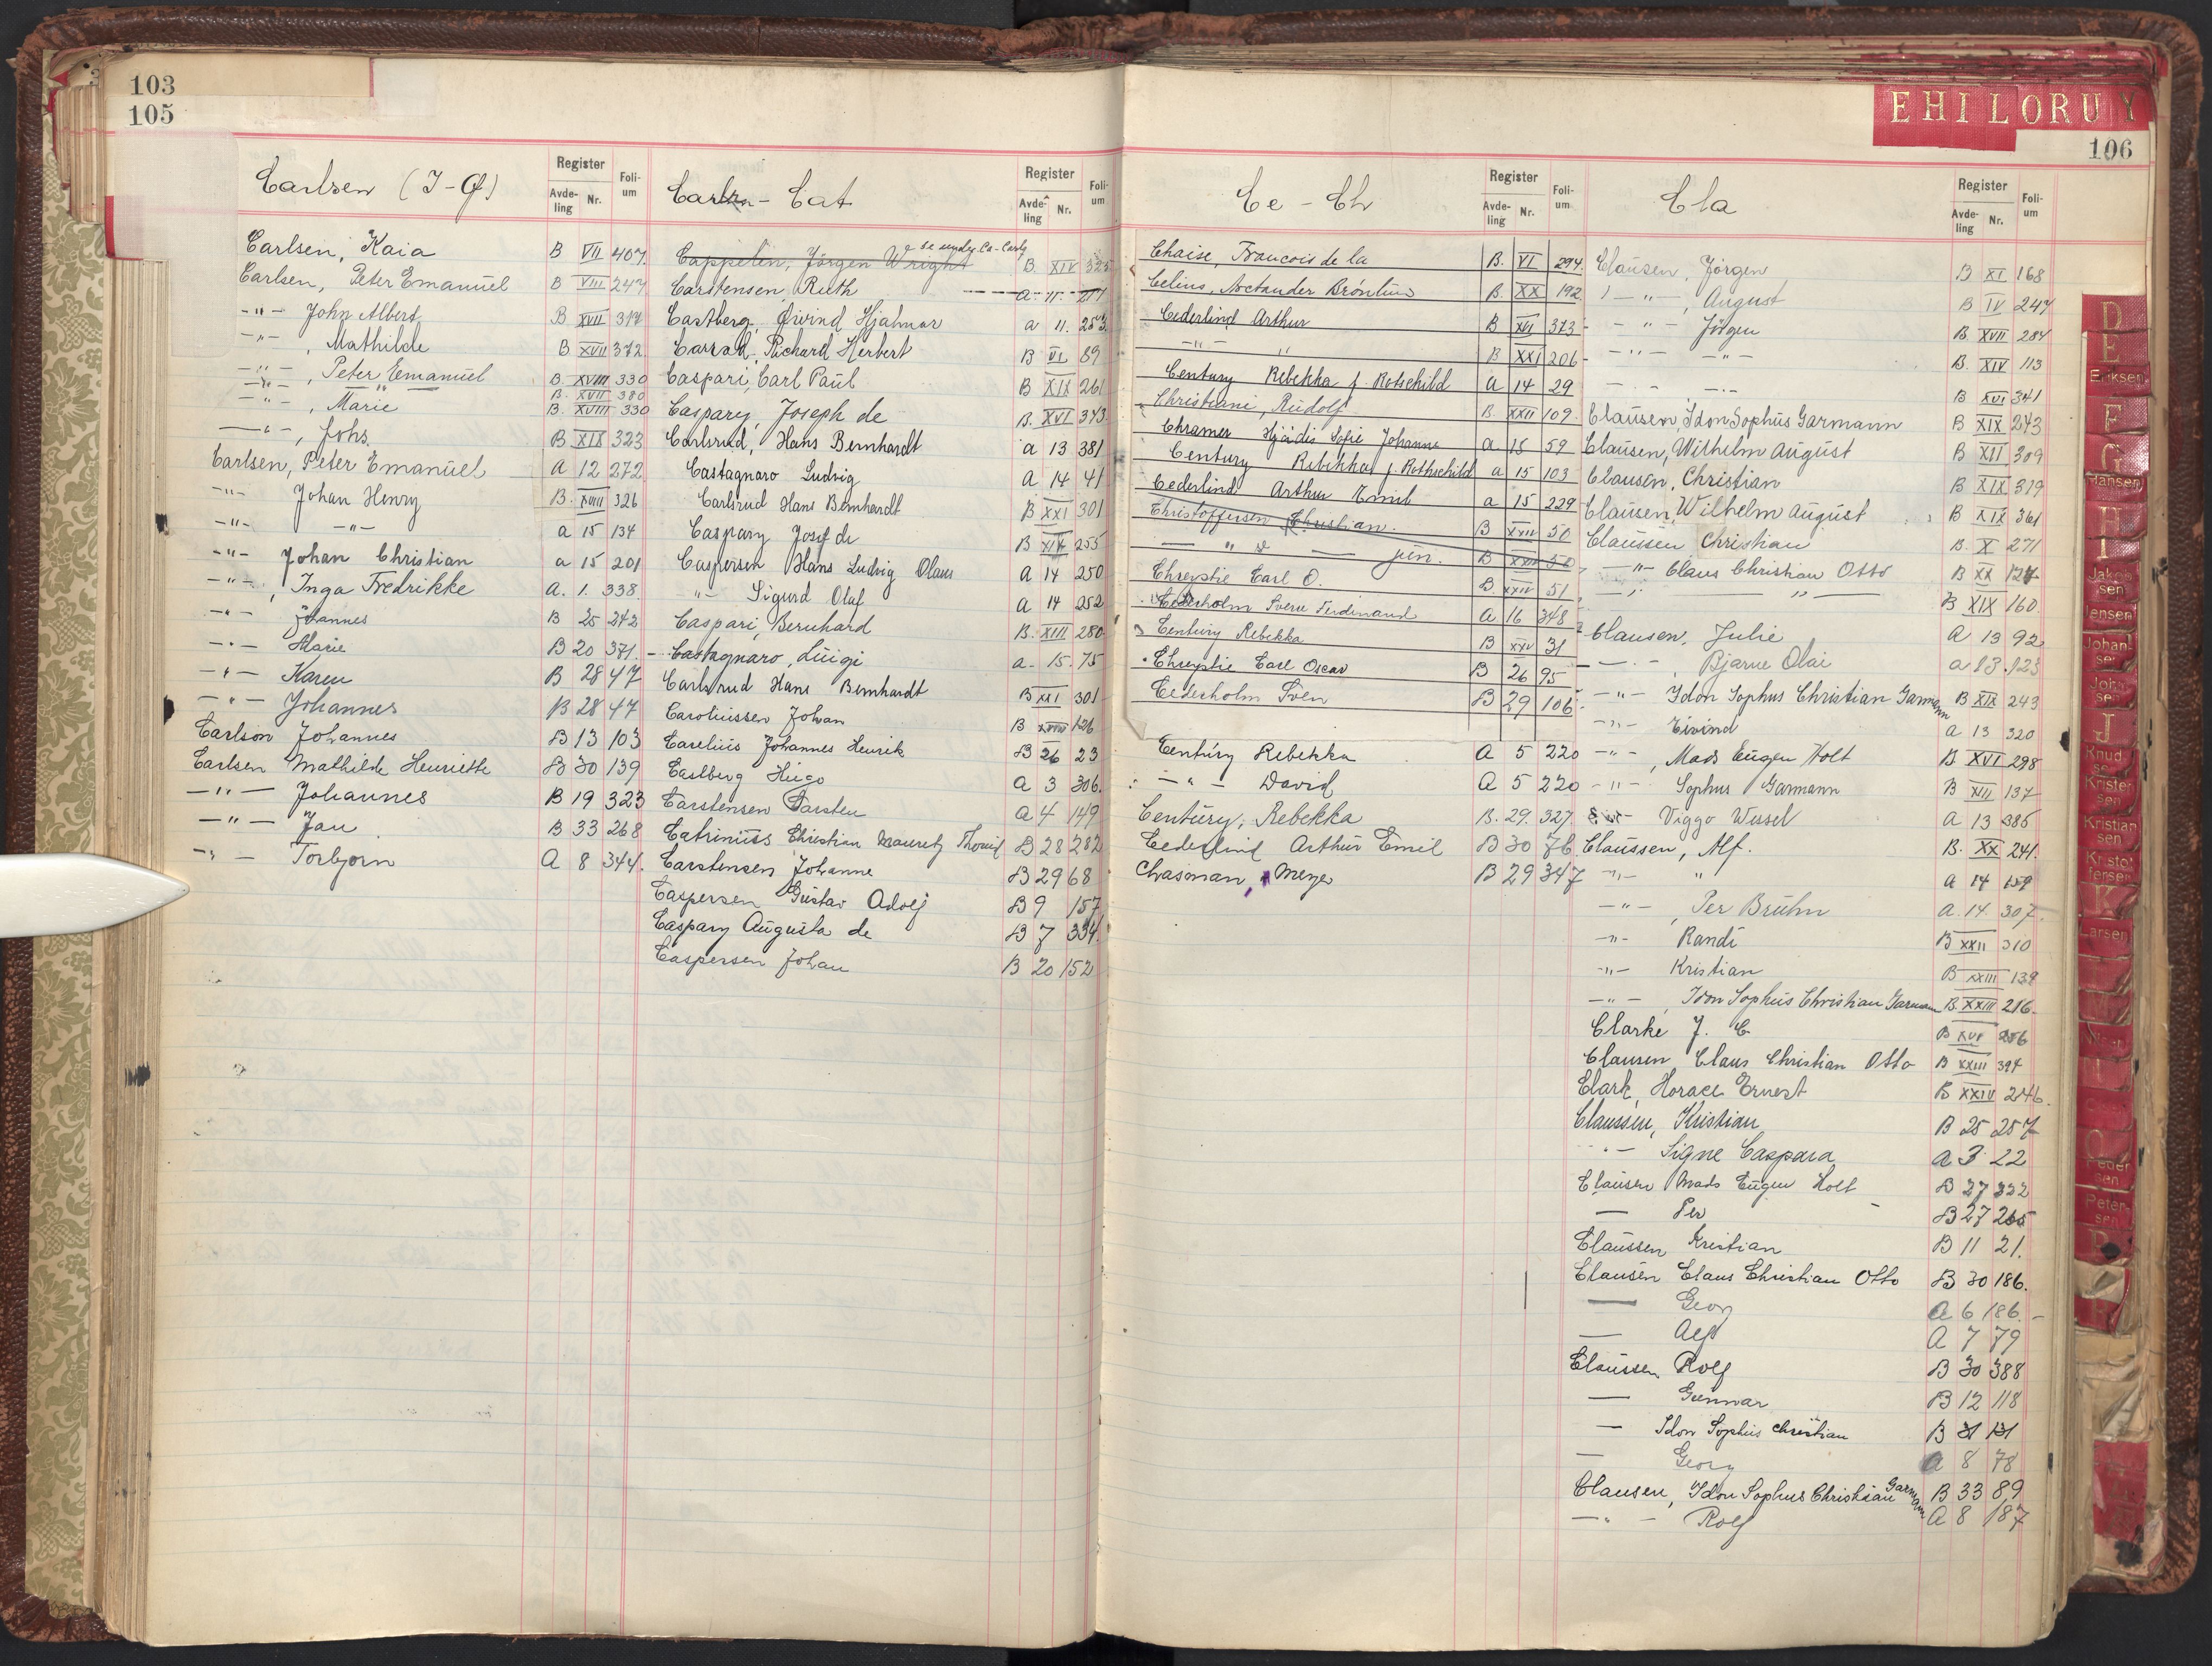 103
105
Carlsen (I-Q)
Register
Avde-ling Nr.
Foli-um
Carlsen, Kaia B VII 407.
Carlsen, Peter Emanuel B VIII 247
-"- John Albert B XVII 317
-"- , Mathilde B XVII 372
-"- , Peter Emanuel B. XVIII 330
-"- " B. XVII 380
-"- , Marie B. XVIII 330
-"- , Johs. B XIX 323
Carlsen, Peter Emanuel A 12 272
-"- Johan Henry B. XVIII 326
-"- -"- a 15 134
-"- Johan Christian a 15 201
-"- , Inga Fredrikke A. 1. 338
-"- Johannes B 25 242
-"- Marie B 20 371.
-"- Karen B 28 47
-"- Johannes B 28 47
Carlson Johannes B 13 103
Carlsen Mathilde Henriette B 30 139
-"- Johannes B 19 323
-"- Jan B 33 268
-"- Torbjørn A 8 344.
Carlsn - Cat
Register
Avde-ling Nr.
Foli-um
Cappelen, Jörgen Wright se under Ca-Carlg B. XIV 325
Carstensen Ruth a 11
Castberg, Øivind Hjalmar a 11. 253
Richard Herbert B VI 89
Caspari, Carl Paul B XIX 261
Caspary, Joseph de B. XVI 343
Carlsrud, Hans Bernhardt a 13 381
Castagnaro Ludvig A 14 41
Carlsrud Hans Bernhardt B XXI 301
Caspary Josef de B XIX 255
Caspersen Hans Ludvig Olaus A 14 250
-"- Sigurd Olaf A 14 252
Caspari, Bernhard B. XIII 280
Castagnaro, Luigi a. 15. 75
Carlsrud Hans Bernhardt B XXI 301
Caroliussen Johan B XXVIII 126
Carelius Johannes Henrik B 26 23
Caslberg Hugo a 3 306.
Carstensen Carsten a 4 149
Catrinuss Christian Mauretz B 28 282
Carstensen Johanne B 29 68
Caspersen Gustav Adolf B 9 157
Caspary Augusta de B 7 334
Caspersen Johan B 20 152
EHILORUY
106
Ce - Ch
Register
Avde-ling Nr.
Foli-um
Chaise, Francois de la B. VI 294.
Celius, Noctander Bröntius B. XX 192
Cederlind Arthur B XVI 373
-"- " B XXI 206
Century Rebekka f. Rotschild a 14 29
Christiani, Rudolf B. XXII 109.
Chramer Hjördis Sofie Johanne a 15 59
Century Rebekka f. Rothschild a 15 103
Cederlind Arthur Emil a 15 229
Christoffersen Christian. B XXIII 50
— " — jun. B XXIII 50
Chreystie Carl O. B. XXIV 51
Cederholm Sven Ferdinand a 16 348
Century Rebekka B XXV 31
Chreystie Carl Oscar B 26 95
Cederholm Sven B 29 106
Century Rebekka A 5 220
-"- David A 5 220
Century, Rebekka B. 29. 327
Cederlind Arthur Emil B 30 76
Chasman, Meyer B 29 347
Cla
Register
Avde-ling Nr.
Foli-um
Clausen, Jörgen B XI 168
-"- , August B IV 247
-"- Jörgen B. XVII 284
-"- -"- B. XIV 113
-"- -"- B XVI 341
Clausen, Idon Sophus Garmann B XIX 243
Clausen, Wilhelm August B XII 309
Clausen, Christian B XIX 319
Clausen, Wilhelm August B XIX 361
Claussen Christian B. X 271
-"- Claus Christian Otto B XX 127
-"- -"- B XIX 160
Clausen, Julie A 13 92
-"- , Bjarne Olai a 13. 123
-"- Idon Sophus Christian Garmann B XIX 243
-"- Eivind a 13 320
-"- , Mads Eugen Holt B XVI 298
-"- Sophus Garmann B XIII 137
-"- Viggo Wessel A 13 385
Claussen, Alf. B. XX 241.
-"- " A 14 159
-"- , Per Bruhn A. 14. 307.
-"- Randi B XXII 310
-"- Kristian B XXIII 139
-"- , Idon Sophus Christian Garmann B. XXIII 216.
Clarke J. C. B XVI 256
Clausen Claus Christian Otto B XXIII 394
Clark, Horace Ernest B XXIV 246.
Claussen, Kristian B 25 257
-"- Signe Caspara a 3 22
Clausen Mads Eugen Holt B 27 222
— Per B 27 265
Claussen Kristian B 11 21.
Clausen Claus Christian Otto B 30 186.
— Georg a 6 186.
— Alf A 7 79
Claussen Rolf B 30 388
— Gunnar B 12 118
— Idon Sophus Christian B 31 131
— Georg a 8 78
Clausen, Idon Sophus Christian Garmann B 33 89
-"- Rolf A 8 187
D
E
Eriksen
F
G
Hansen
H
I
Jakobsen
Jensen
Johansen
Johnsen
J
Knudsen
Kristensen
Kristiansen
Kristoffersen
K
Larsen
L
O
Pedersen
Petersen
P
R